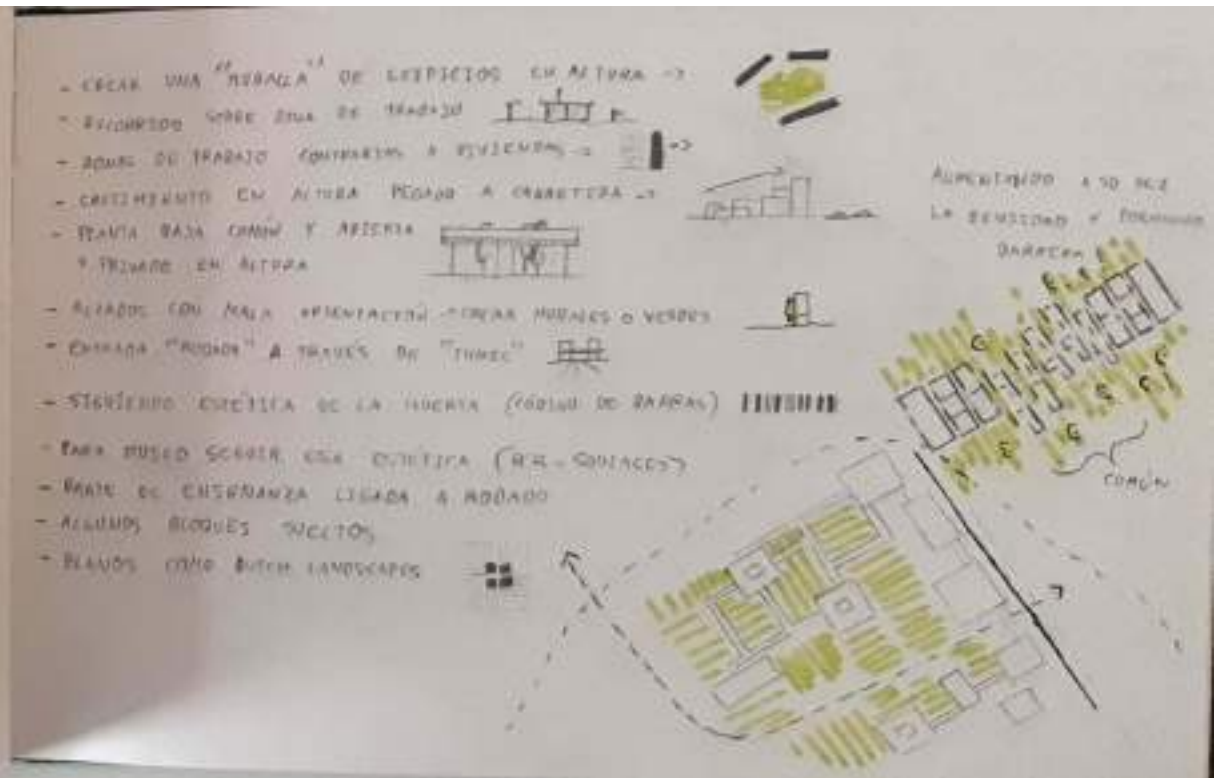 - CREAR UNA "MURALLA" DE EDIFICIOS EN ALTURA ->
- RECORRIDO SOBRE ZONA DE TRABAJO
- ZONAS DE TRABAJO CONTRARIAS A VIVIENDAS ->
- CRECIMIENTO EN ALTURA PEGADO A CARRETERA ->
- PLANTA BAJA COMÚN Y ABIERTA
Y PRIVADO EN ALTURA
- ALZADOS CON MALA ORIENTACIÓN -> CREAR MURALES O VERDES
- ENTRADA "RODADA" A TRAVÉS DE "TUNEL"
- SIGUIENDO ESTÉTICA DE LA HUERTA (CÓDIGO DE BARRAS)
- PARA MUSEO SEGUIR ESA ESTÉTICA (RR-SOULAGES)
- PARTE DE ENSEÑANZA LIGADA A RODADO
- ALGUNOS BLOQUES SUELTOS
- PLANOS COMO DUTCH LANDSCAPES
AUMENTANDO A SU VEZ
LA DENSIDAD Y
COMÚN